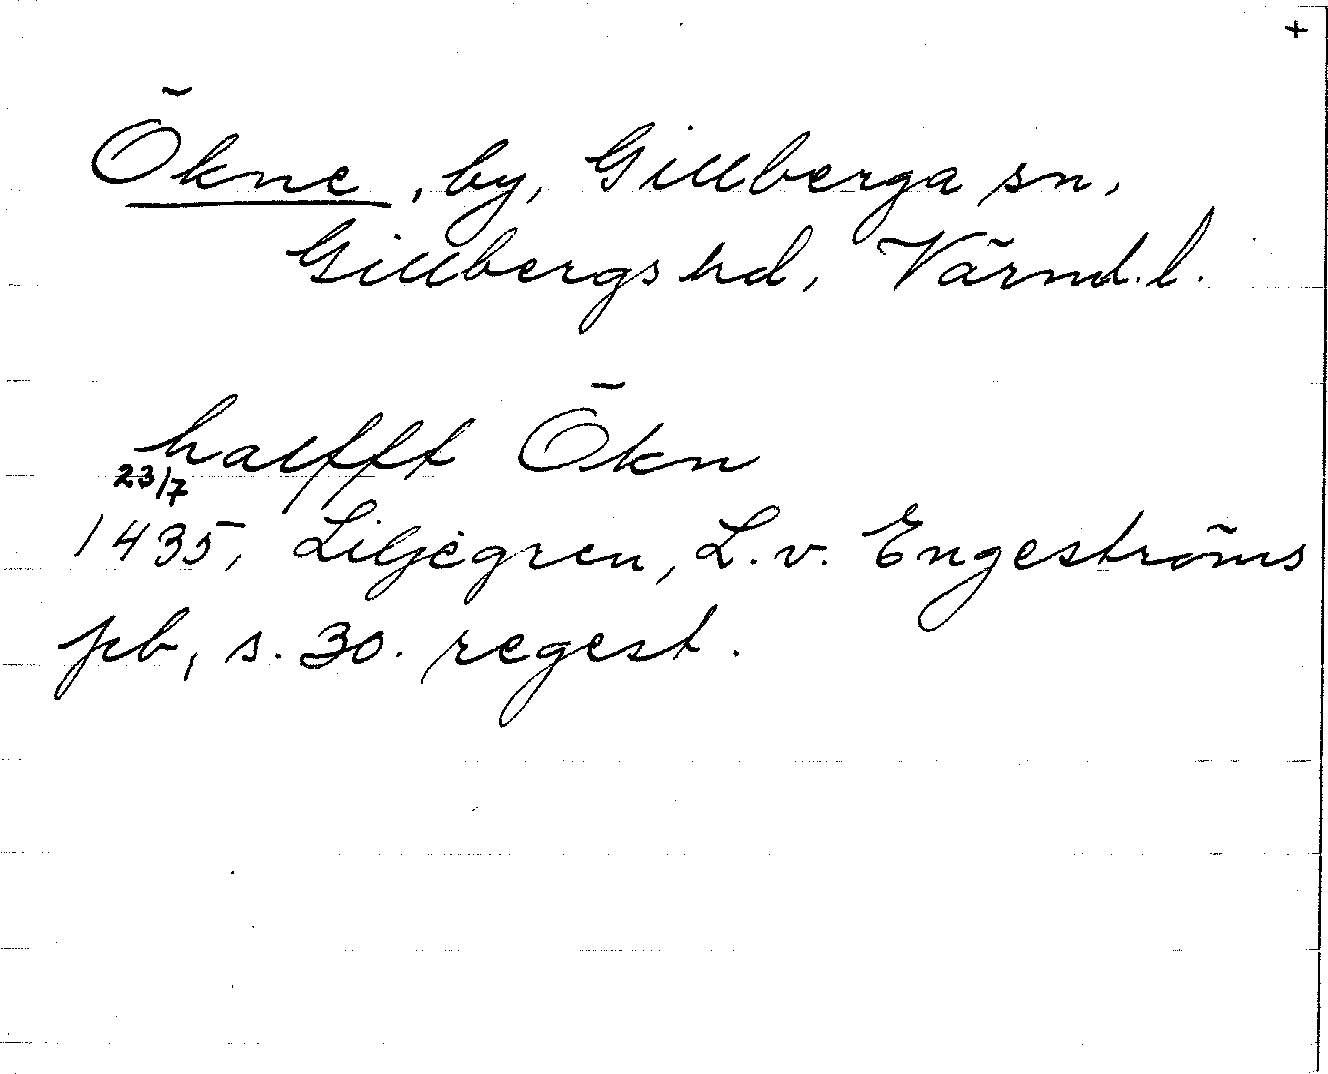 +
Ökne, by, Gillberga sn,
Gillbergs hd, Värml. l.
halfft Ökn
23/7
1435, Liljegren, L. v. Engeströms
pb, s. 30. regest.